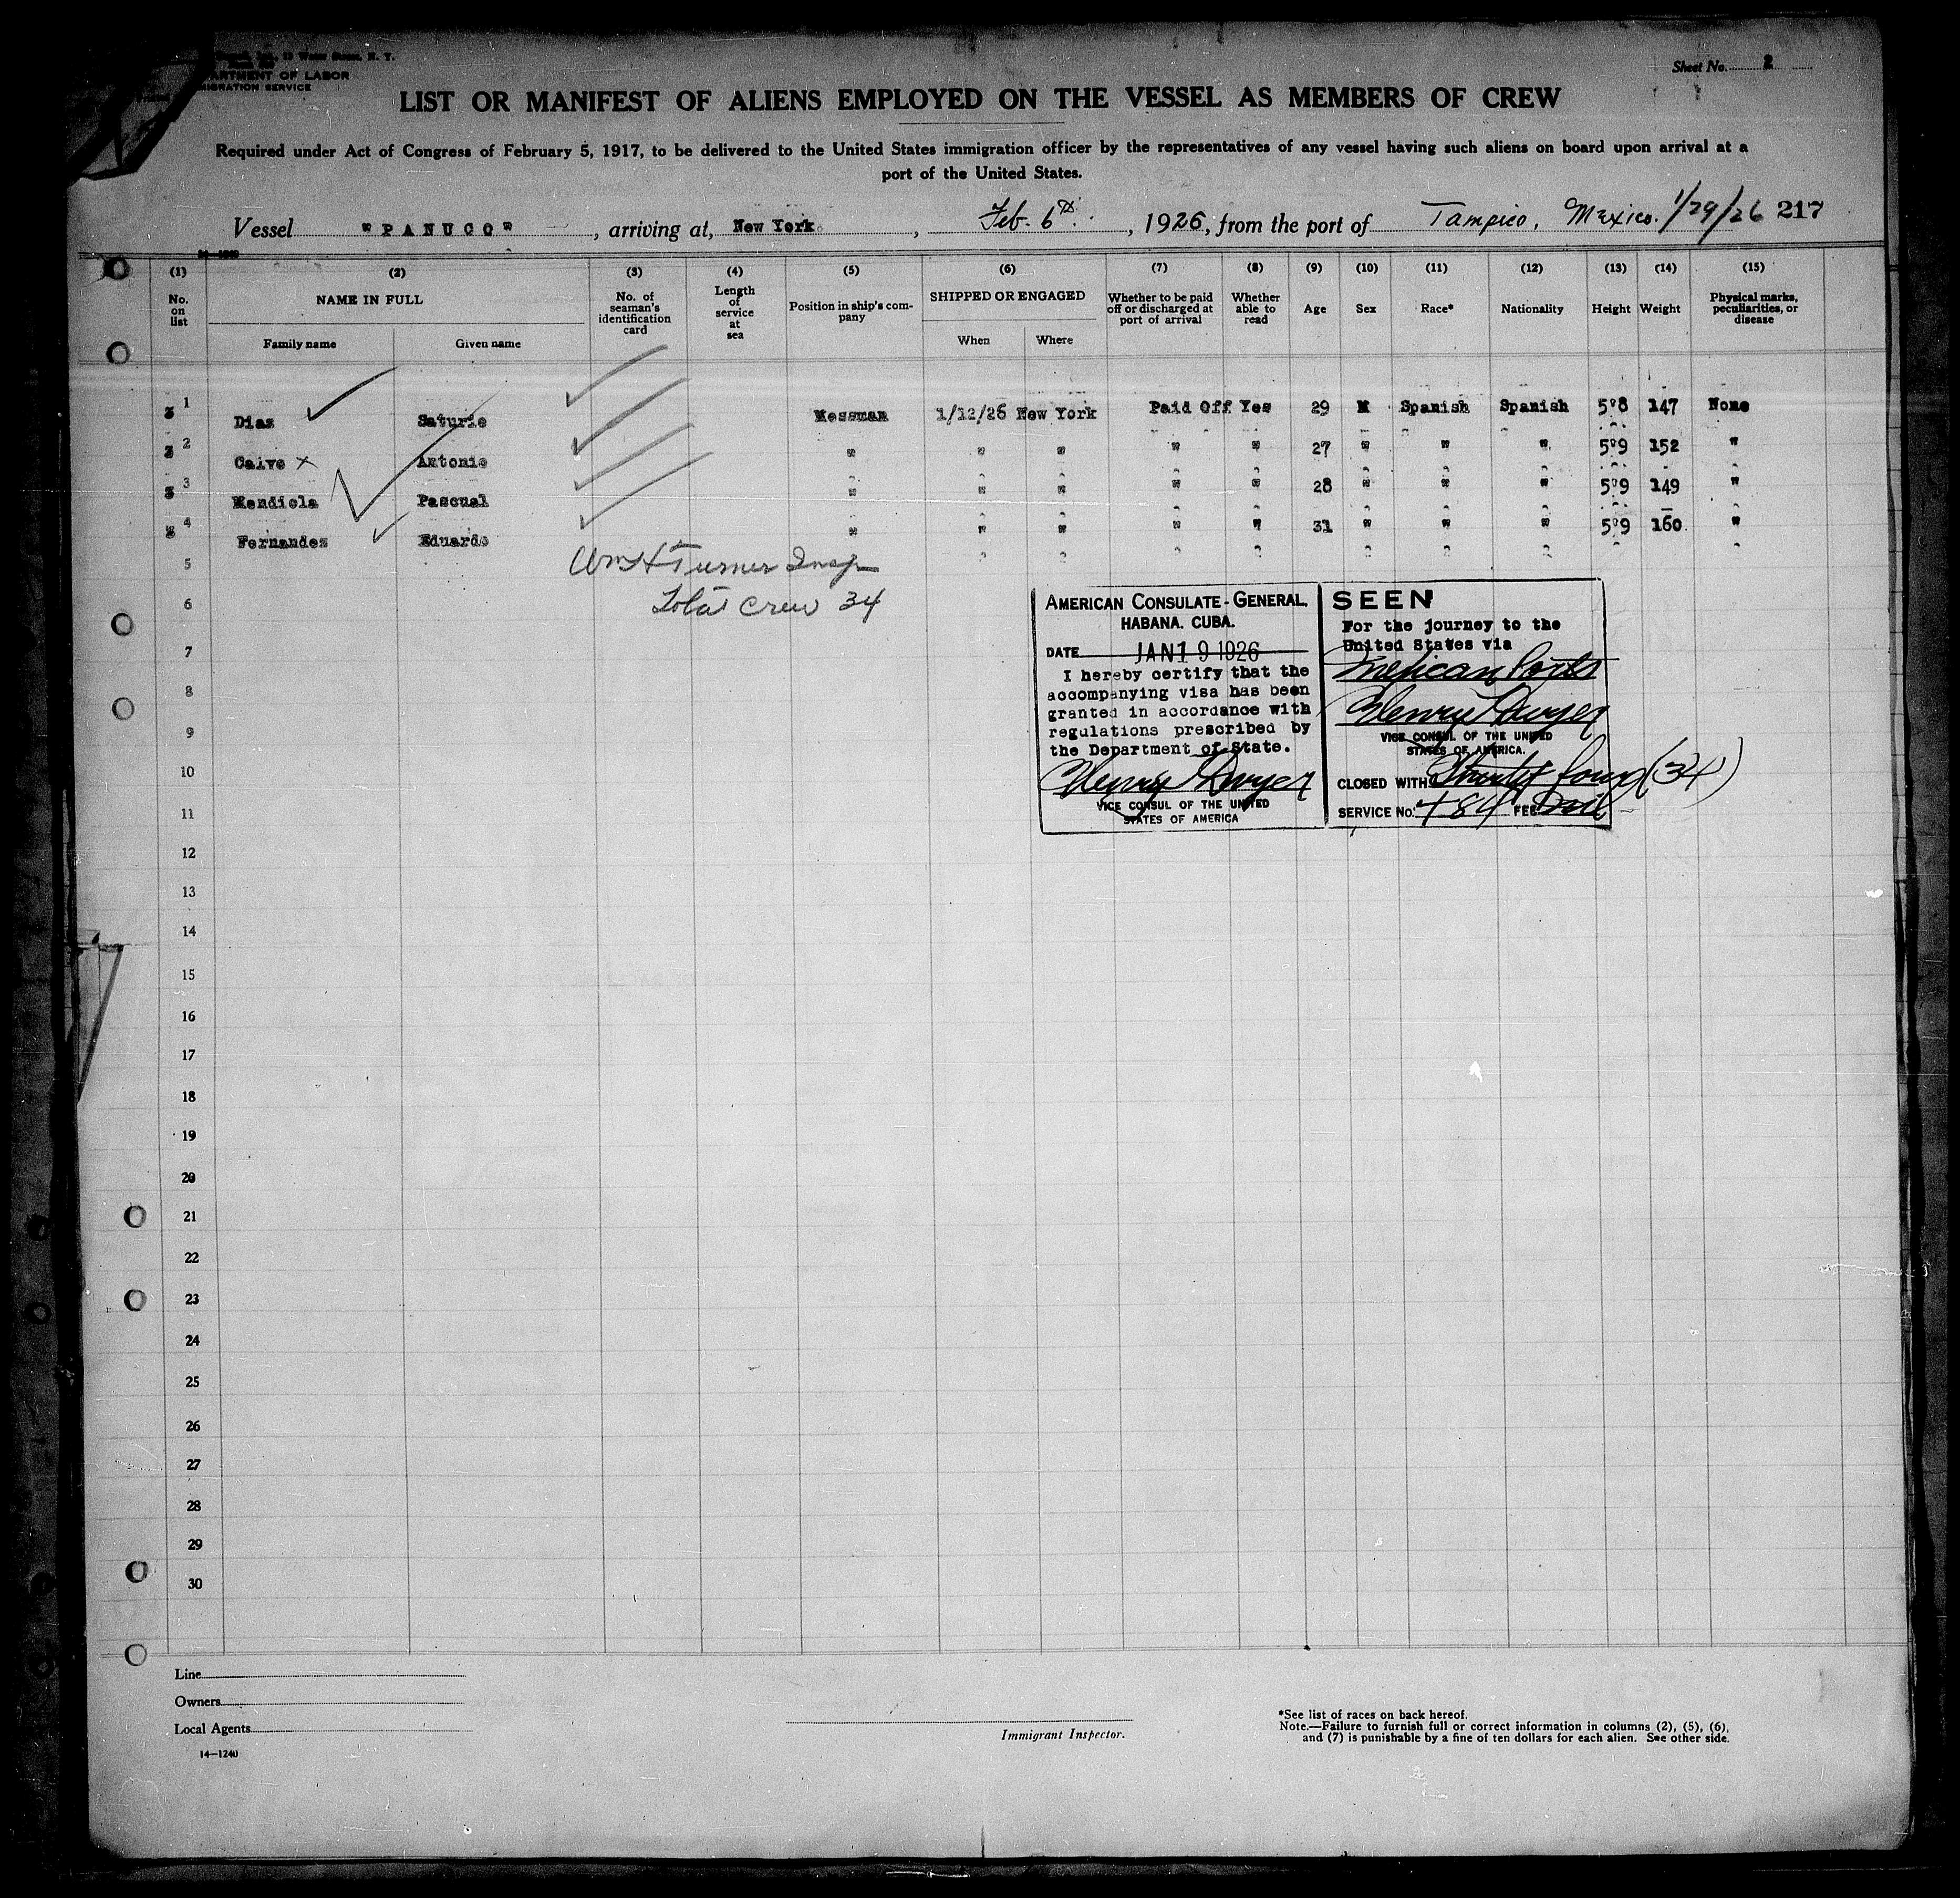 13 Water Street, N. Y.
DEPARTMENT OF LABOR
IMMIGRATION SERVICE
Sheet No. 2
LIST OR MANIFEST OF ALIENS EMPLOYED ON THE VESSEL AS MEMBERS OF CREW
Required under Act of Congress of February 5, 1917, to be delivered to the United States immigration officer by the representatives of any vessel having such aliens on board upon arrival at a
port of the United States.
Vessel "PANUCO", arriving at, New York, Feb. 6th, 1926, from the port of Tampico, Mexico. 1/29/26 217
(1) (2) (3) (4) (5) (6) (7) (8) (9) (10) (11) (12) (13) (14) (15)
No. on list NAME IN FULL No. of seaman's identification card Length of service at sea Position in ship's company SHIPPED OR ENGAGED Whether to be paid off or discharged at port of arrival Whether able to read Age Sex Race* Nationality Height Weight Physical marks, peculiarities, or disease
Family name Given name When Where
1 Diaz Saturio Messman 1/12/26 New York Paid Off Yes 29 M Spanish Spanish 5'8 147 None
2 Calvo x Antonio " " " " " 27 " " " 5'9 152 "
3 Mendiola Pascual " " " " " 28 " " " 5'9 149 "
4 Fernandez Eduardo " " " " " 31 " " " 5'9 160 "
5 Wm H Turner Insp
6 Total Crew 34
7
8
9
10
11
12
13
14
15
16
17
18
19
20
21
22
23
24
25
26
27
28
29
30
AMERICAN CONSULATE-GENERAL,
HABANA. CUBA.
DATE JAN 19 1926
I hereby certify that the
accompanying visa has been
granted in accordance with
regulations prescribed by
the Department of State.
Henry Dwyer
VICE CONSUL OF THE UNITED
STATES OF AMERICA
SEEN
For the journey to the
United States via
Mexican Ports
Henry Dwyer
VICE CONSUL OF THE UNITED
STATES OF AMERICA.
CLOSED WITH Thirty four (34)
SERVICE No. 484 FEE Nil
Line
Owners
Local Agents
14—1240
Immigrant Inspector.
*See list of races on back hereof.
Note.—Failure to furnish full or correct information in columns (2), (5), (6),
and (7) is punishable by a fine of ten dollars for each alien. See other side.